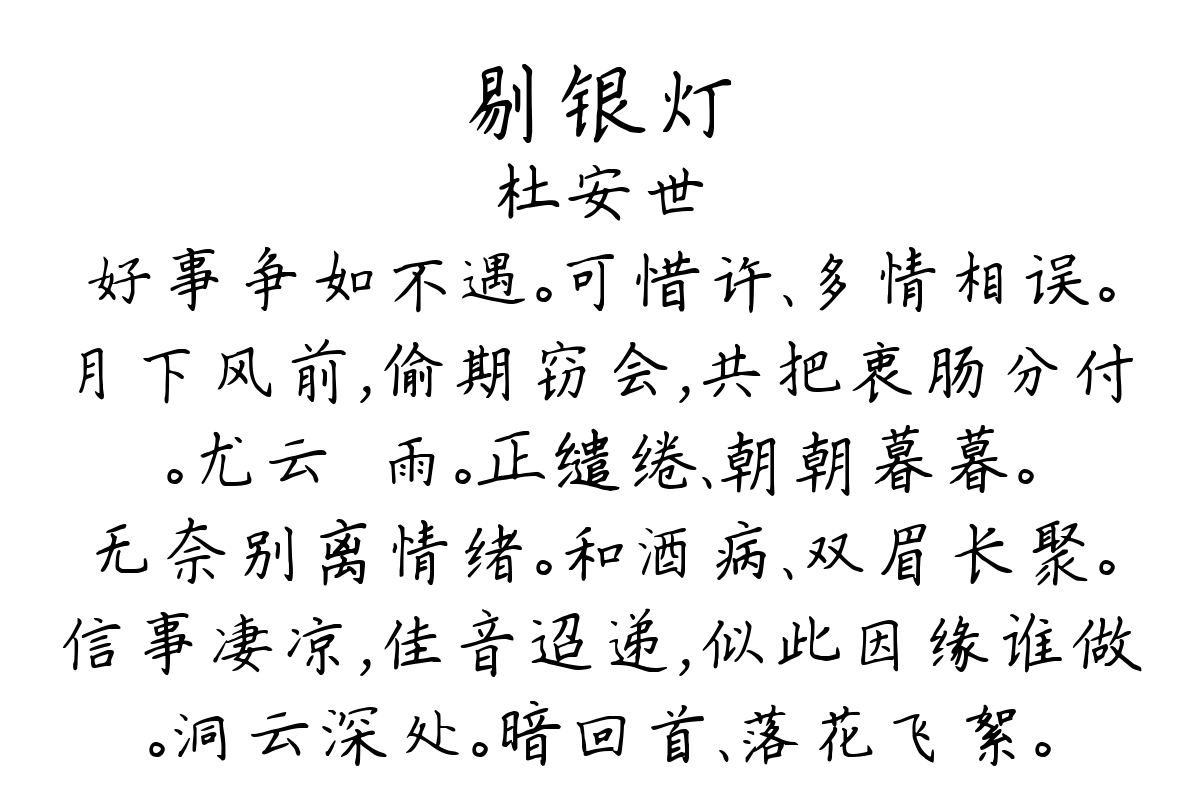 剔银灯
杜安世
好事争如不遇。可惜许、多情相误。
月下风前,偷期窃会,共把衷肠分付
。尤云 雨。正缱绻、朝朝暮暮。
无奈别离情绪。和酒病、双眉长聚。
信事凄凉,佳音迢递,似此因缘谁做
。洞云深处。暗回首、落花飞絮。